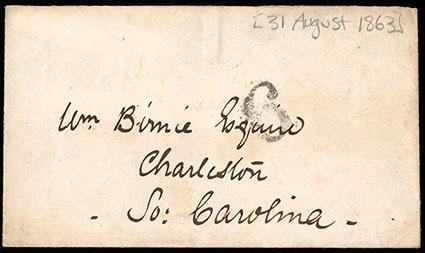 [31 August 1863]
Wm Birnie Esquire
Charleston
- So: Carolina -